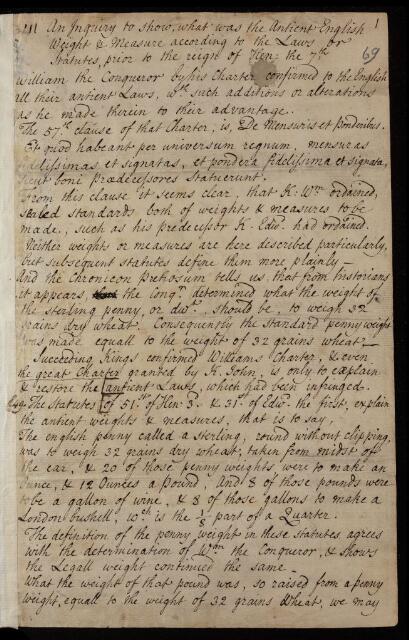 An Inquiry to show, what was the Antient English 1
Weight & Measure according to the Laws or
Statutes, prior to the reign of Hen: the 7th 69
William the Conqueror by his Charter confirmed to the English
all their antient Laws, wth such additions or alterations
as he made therein to their advantage.
The 57th clause of that Charter, is, De Mensuris et ponderibus.
Et quod habeant per universum regnum, mensuras
fidelissimas et signatas, et pondera fidelissima et signata,
sicut boni prædecessores statuerunt.
From this clause it seems clear, that K. Wm ordained,
stated standards both of weights & measures to be
made, such as his predecessor K. Edwd had ordained.
Neither weights or measures are here described particularly,
but subsequent statutes define them more plainly —
And the Chronicon Pretiosum tells us, that from historians
it appears, the Conqr determined what the weight of
the sterling penny, or dwt should be, to weigh 32
grains dry wheat. Consequently the standard penny weight
was made equall to the weight of 32 grains wheat. —
Succeeding Kings confirmed Williams Charter, & even
the great Charter granted by K. John, is only to explain
& restore the antient Laws, which had been infringed.
The Statutes of 51st of Hen: 3d & 31st of Edwd the first, explain
the antient weights & measures, that is to say,
The english penny called a sterling, round without clipping,
was to weigh 32 grains dry wheat, taken from midst of
the ear, & 20 of those penny weights were to make an
Ounce, & 12 Ounces a pound, And 8 of those pounds were
to be a gallon of wine, & 8 of those gallons to make a
London bushell, wch is the 1/8 part of a Quarter.
The definition of the penny weight in these statutes agrees
with the determination of Wm the Conqueror, & shows
the Legall weight continued the same —
What the weight of that pound was, so raised from a penny
weight, equall to the weight of 32 grains wheat, we may